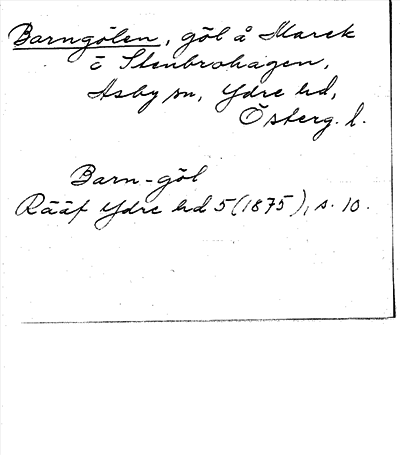 Barngölen, göl å Marek
i Stenbrohagen,
Asby sn, Ydre hd,
Österg. l.
Barn-göl
Rääf Ydre hd 5 (1875), s. 10.